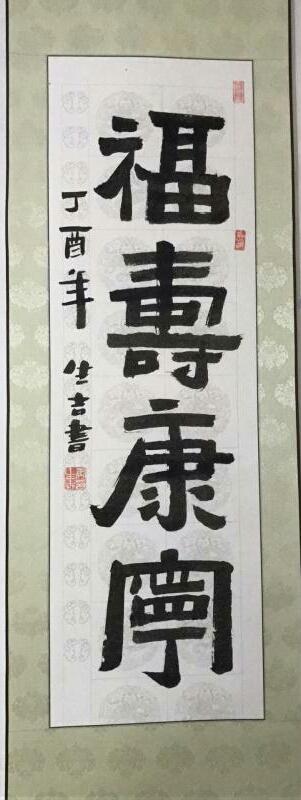 福壽康寧
丁酉年 生吉書